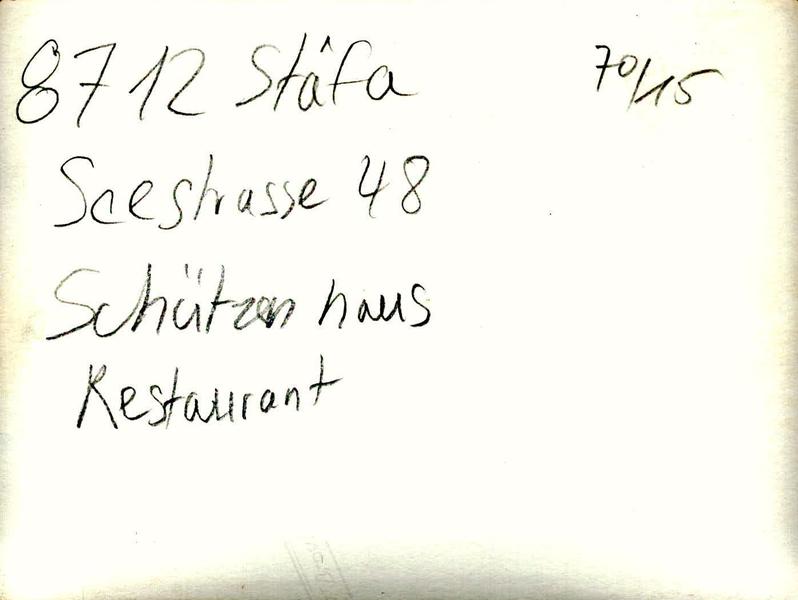 8712 Stäfa
70/15
Seestrasse 48
Schützenhaus
Restaurant